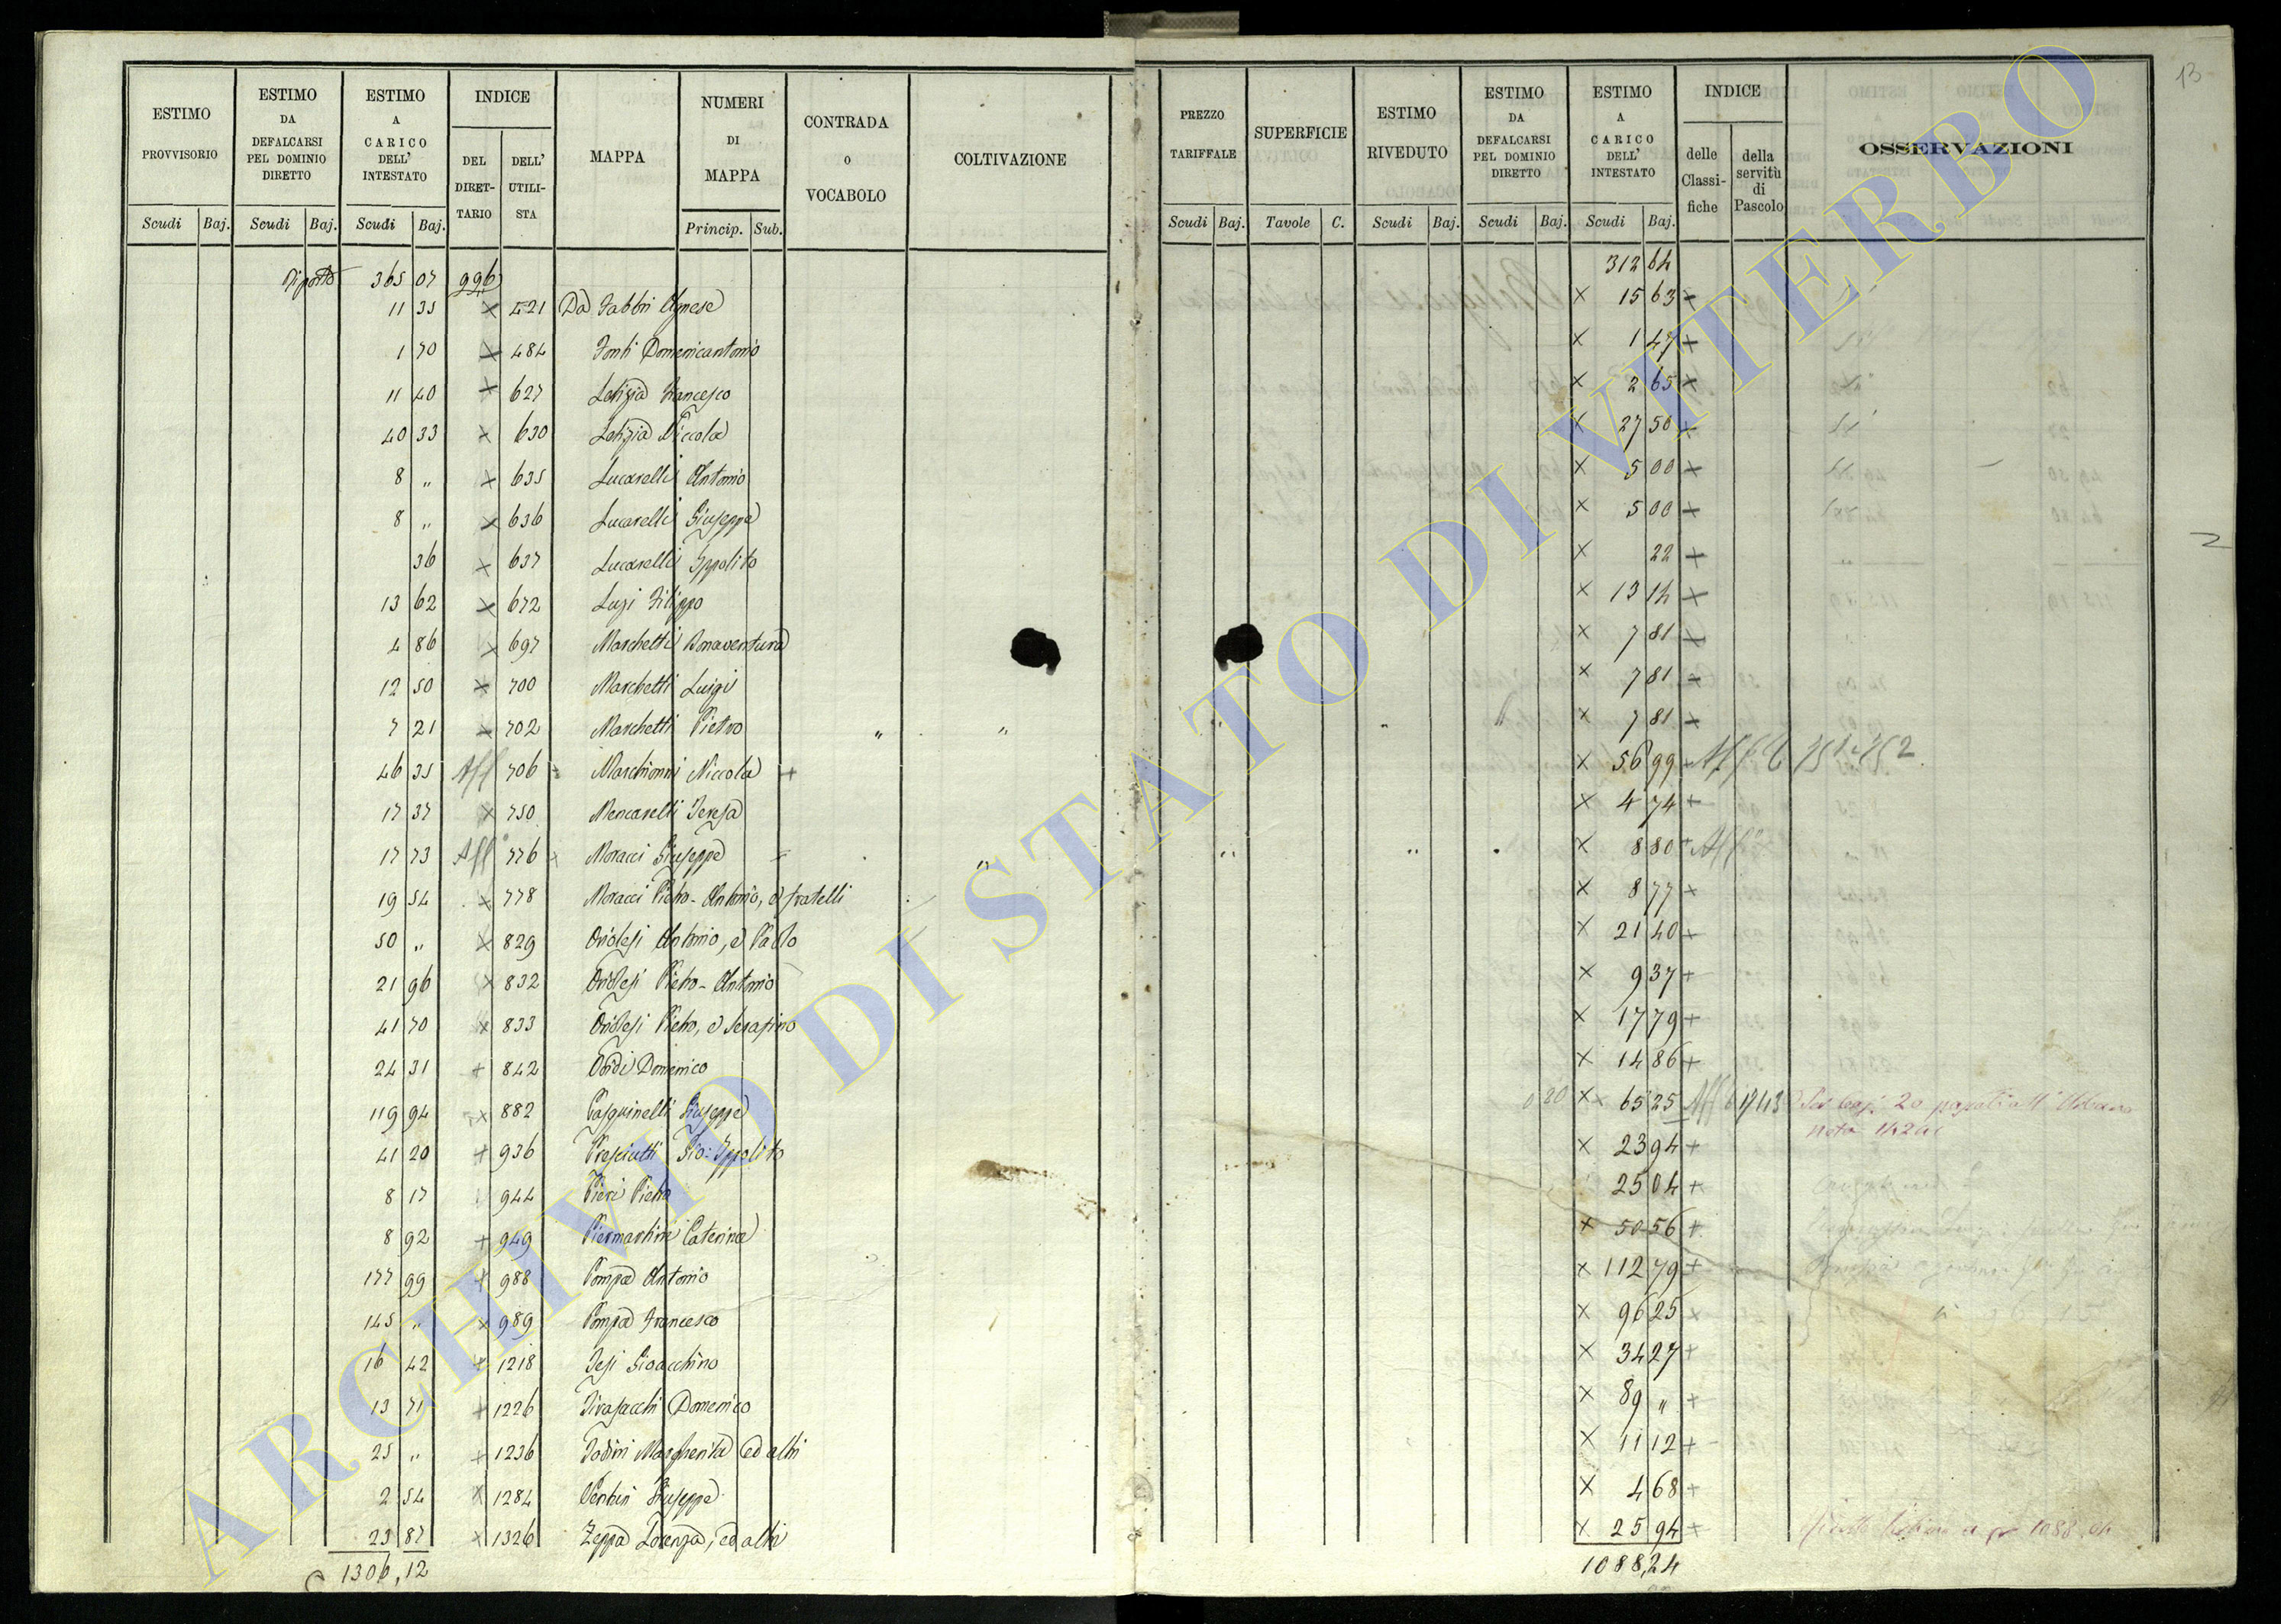 ESTIMO PROVVISORIO
ESTIMO DA DEFALCARSI PEL DOMINIO DIRETTO
ESTIMO A CARICO DELL' INTESTATO
INDICE
DEL DIRETTARIO
DELL' UTILISTA
MAPPA
NUMERI DI MAPPA
CONTRADA o VOCABOLO
COLTIVAZIONE
Scudi Baj. Scudi Baj. Scudi Baj. Princip. Sub.
PREZZO TARIFFALE
SUPERFICIE
ESTIMO RIVEDUTO
ESTIMO DA DEFALCARSI PEL DOMINIO DIRETTO
ESTIMO A CARICO DELL' INTESTATO
INDICE
delle Classifiche
della servitù di Pascolo
OSSERVAZIONI
Scudi Baj. Tavole C. Scudi Baj. Scudi Baj. Scudi Baj.
13
Riporto 365 07 996 312 64
11 35 × 421 Da Fabbri Agnese × 15 63 ×
1 70 × 484 Fonti Domenicantonio × 1 47 ×
11 40 × 627 Letizia Francesco × 2 65 ×
40 33 × 630 Letizia Niccola × 27 50 ×
8 " × 635 Lucarelli Antonio × 5 00 ×
8 " × 636 Lucarelli Giuseppe × 5 00 ×
36 × 637 Lucarelli Ippolito × 22 +
13 62 × 672 Luzi Filippo × 13 14 ×
4 86 × 697 Marchetti Bonaventura × 7 81 ×
12 50 × 700 Marchetti Luigi × 7 81 ×
7 21 × 702 Marchetti Pietro " " " " " × 7 81 ×
46 35 Aff 706 Marchionni Niccola + × 56 99 Aff
17 37 × 750 Mencarelli Teresa × 4 74 +
17 73 Aff 776 Moracci Giuseppe " " " × 8 80 Aff
19 54 × 778 Moracci Pietro-Antonio, e fratelli × 8 77 +
50 " × 829 Oriolesi Antonio, e Paolo × 21 40 +
21 96 × 832 Oriolesi Pietro-Antonio × 9 37 +
41 70 × 833 Oriolesi Pietro, e Serafino × 17 79 +
24 31 + 842 Domenico × 14 86 +
119 94 × 882 Pasquinelli Giuseppe 0 20 × 65 25 Aff
41 20 + 936 Presciutti Gio: Ippolito × 23 94 +
8 17 944 Pieri Pietro 25 04 +
8 92 + 949 Piermartini Caterina × 50 56 +
177 99 + 988 Pompa Antonio × 112 79 +
145 " × 989 Pompa Francesco × 96 25 ×
16 42 + 1218 Tesi Gioacchino × 34 27 +
13 71 + 1226 Tirasacchi Domenico × 89 " +
25 " + 1236 Todini Margherita ed altri × 11 12 +
2 54 × 1284 Venturi Giuseppe × 4 68 +
23 87 × 1326 Zeppa Lorenza, ed altri × 25 94 +
1306,12 1088,24
ARCHIVIO DI STATO DI VITERBO